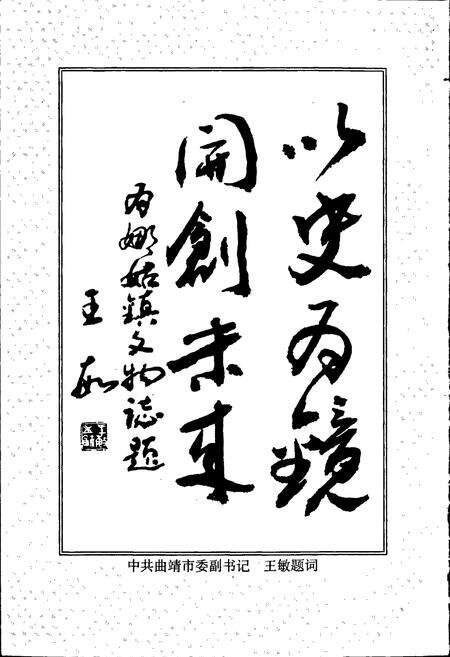 以史为鏡
開創未来
为娜姑鎮文物誌題
王敏
中共曲靖市委副书记　王敏题词